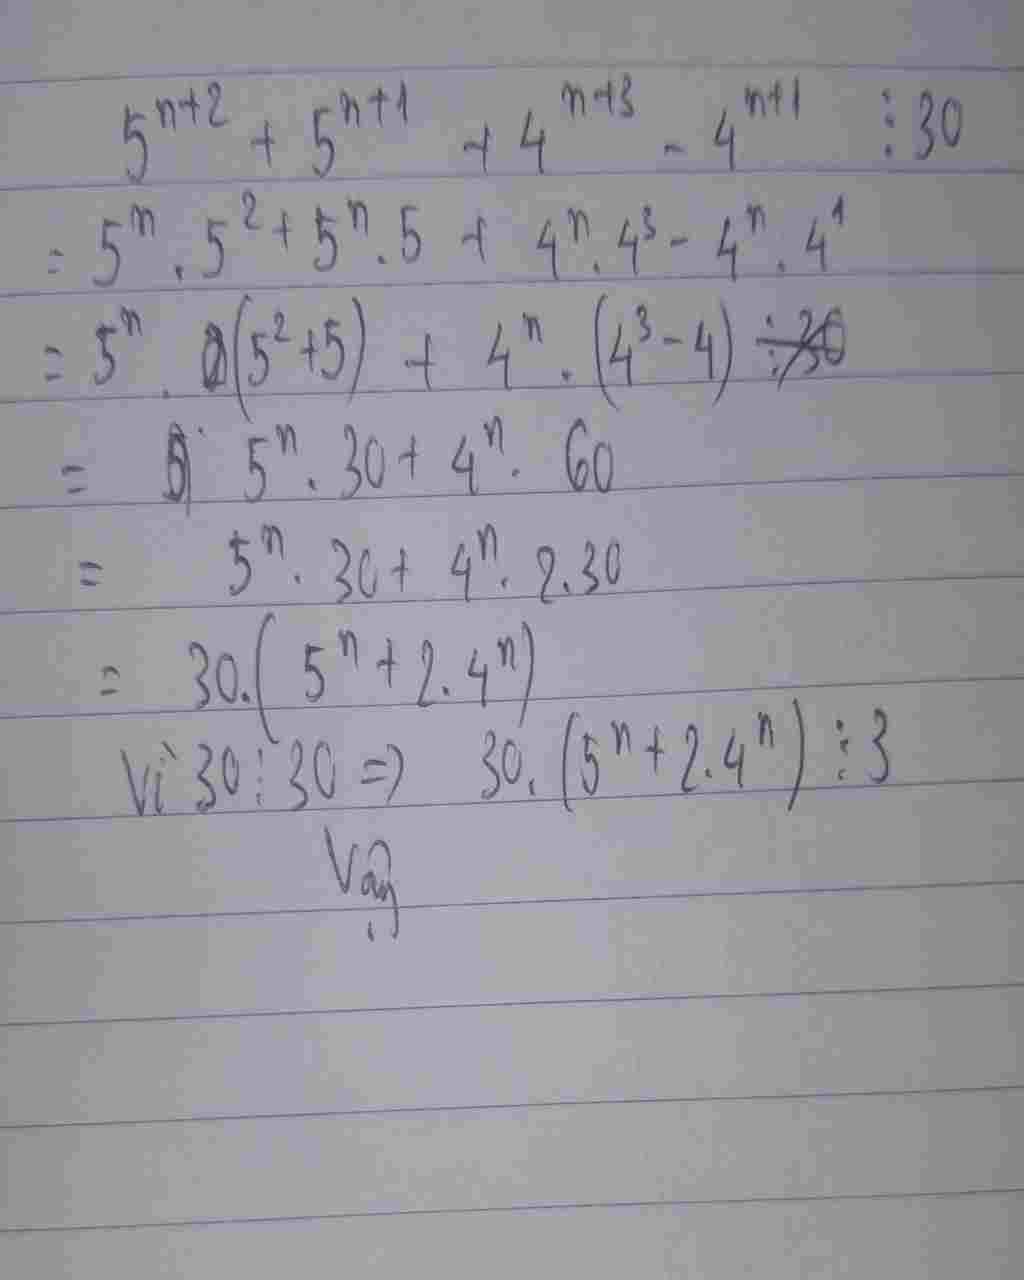 5^{n+2} + 5^{n+1} + 4^{n+3} - 4^{n+1} ⋮ 30
= 5^n . 5^2 + 5^n . 5 + 4^n . 4^3 - 4^n . 4^1
= 5^n . (5^2 + 5) + 4^n . (4^3 - 4)
= 5^n . 30 + 4^n . 60
= 5^n . 30 + 4^n . 2.30
= 30.(5^n + 2.4^n)
Vì 30 ⋮ 30 => 30.(5^n + 2.4^n) ⋮ 3
Vậy